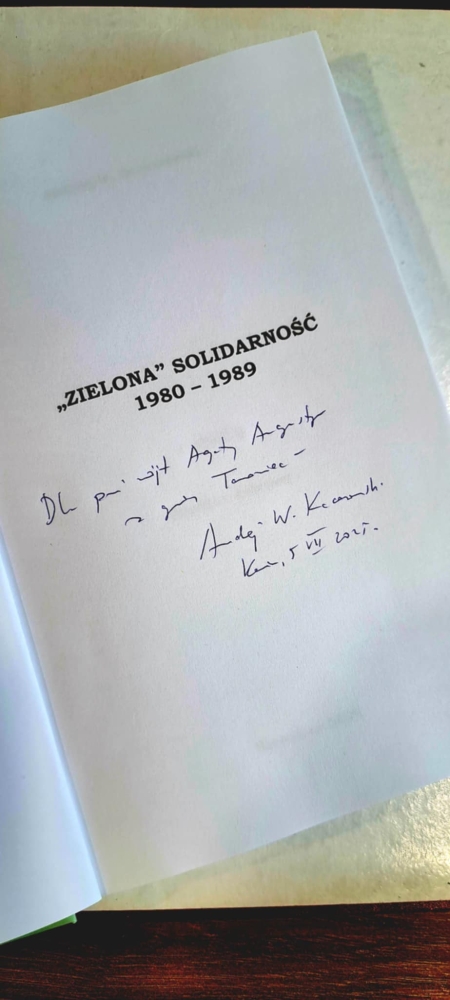 „ZIELONA” SOLIDARNOŚĆ
1980 – 1989
Dla pani wójt Agaty Augustyn
z gminy
Andrzej W. Kaczorowski.
5 VII 2025.